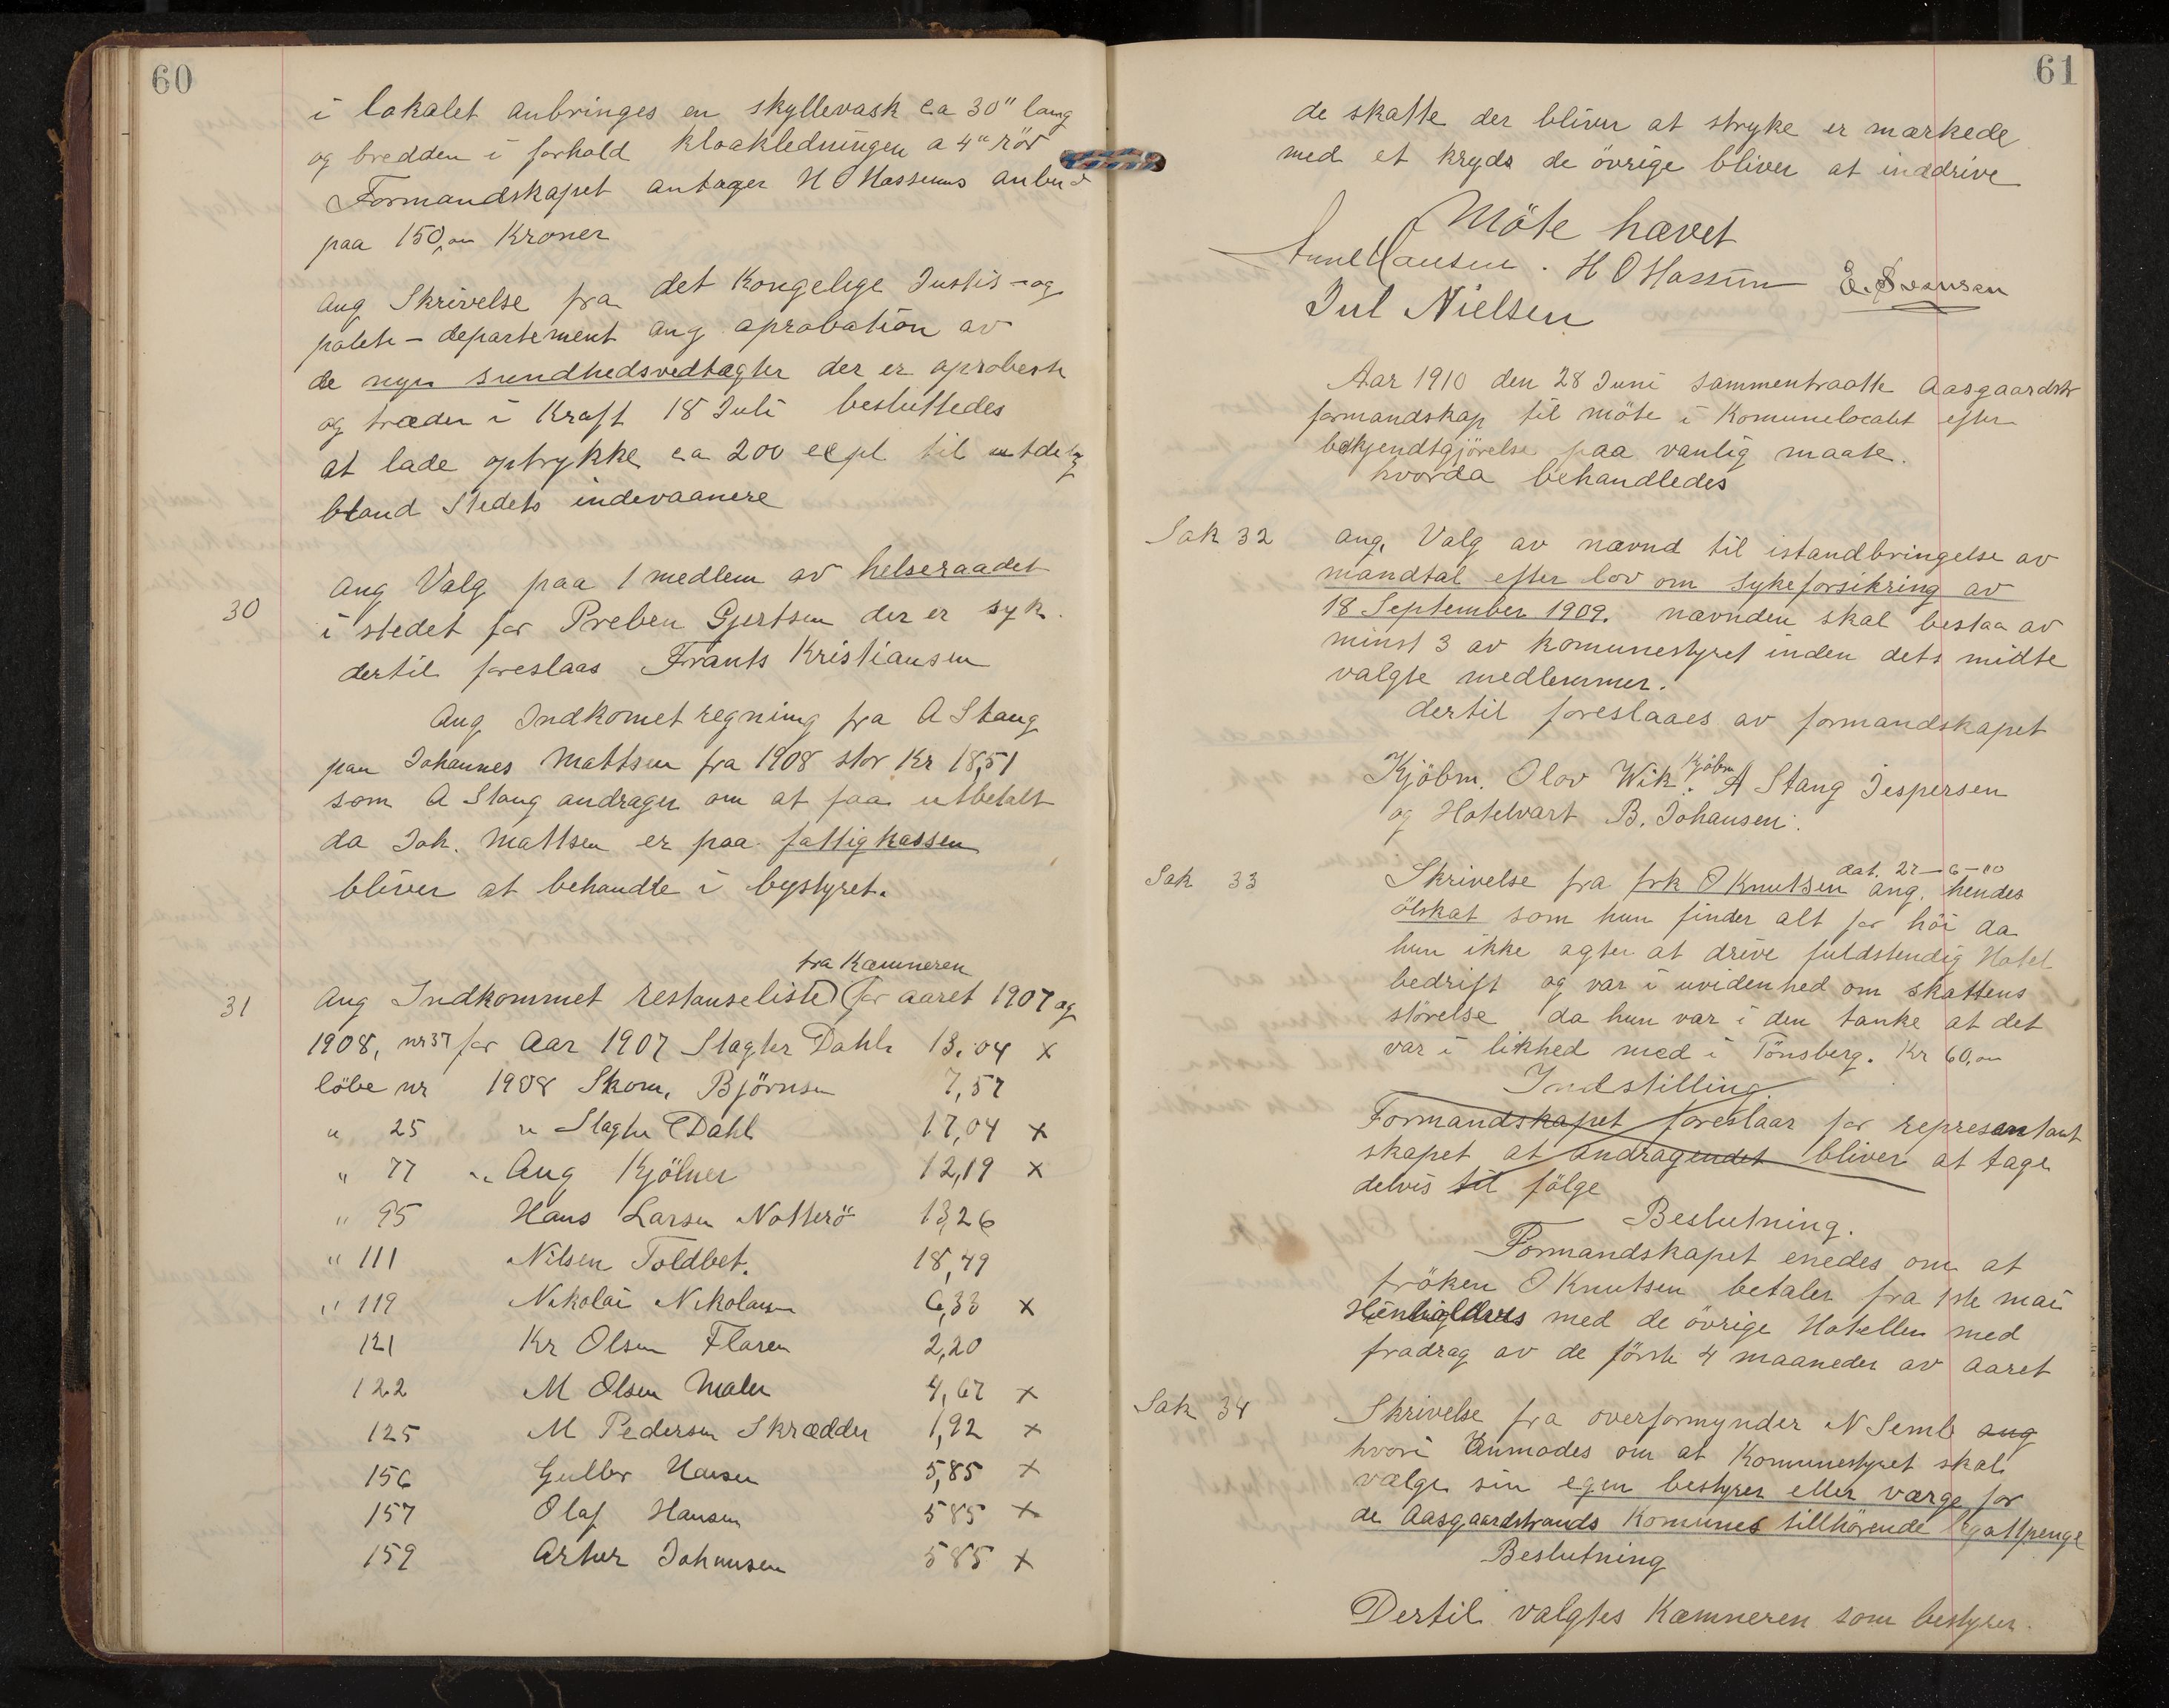 60
i lokalet anbringes en skyllevask ca 30" lang
og bredden i forhold kloakledningen a 4" rör
Formandskapet antager H O Hassums anbud
paa 150,00 Kroner
ang Skrivelse fra det Kongelige Justis - og
politi - departement ang aprobation av
de nye sundhedsvedtægter der er aproberte
og træder i Kraft 18 Juli besluttedes
at lade optrykke ca 200 expl til utdeling
bland Stedets indevaanere
30
ang Valg paa 1 medlem av helseraadet
i stedet for Preben Gjertsen der er syk.
dertil foreslaas Frants Kristiansen
Ang Indkomet regning fra A Stang
paa Johannes Mattsen fra 1908 stor Kr 18,51
som A Stang andrager om at faa utbetalt
da Joh. Mattsen er paa fattigkassen
bliver at behandle i bystyret.
fra Kæmneren
31 Ang Indkommet restanseliste for aaret 1907 og
1908, nr 37 for Aar 1907 Slagter Dahl 13,04 x
löbe nr 1908 Skom. Björnsen 7,57
" 25 " Slagter Dahl 17,04 x
" 77 " Aug Kjölner 12,19 x
" 95 Hans Larsen Notterö 13,26
" 111 Nilsen Toldbet. 18,49
" 119 Nikolai Nikolaisen 6,33 x
121 Kr Olsen Flaren 2,20
122 M Olsen Maler 4,67 x
125 M Pedersen Skrædder 1,92 x
156 Gulbr Hansen 5,85 x
157 Olaf Hansen 585 x
159 Arthur Johansen 585 x
61
de skatte der bliver at stryke er mærkede
med et kryds de övrige bliver at inddrive
Möte hævet
Hansen. H O Hassum E. Svensen
Jul Nielsen
Aar 1910 den 28 Juni sammentraatte Aasgaardstr
formandskap til möte i Komunelocalet efter
bekjendtgjörelse paa vanlig maate.
hvorda behandledes
Sak 32 ang. Valg av nævnd til istandbringelse av
mandtal efter lov om sykeforsikring av
18 September 1909. nævnden skal bestaa av
minst 3 av komunestyret inden dets midte
valgte medlemmer.
dertil foreslaaes av formandskapet
Kjöbm. Olov Wik. Kjöbm A Stang Jespersen
og Hotelvært B. Johansen.
dat. 27-6-10
Sak 33 Skrivelse fra frk O Knutsen ang. hendes
ölskat som hun finder alt for höi da
hun ikke agter at drive fuldstendig Hotel
bedrift og var i uvidenhed om skattens
störelse da hun var i den tanke at det
var i likhed med i Tönsberg. Kr 60,00
Indstilling
Formandskapet foreslaar for representant
skapet at andragendet bliver at tage
delvis til fölge
Beslutning.
Formandskapet enedes om at
fröken O Knutsen betaler fra 1ste mai
med de övrige Hoteller med
fradrag av de förste 4 maaneder av aaret
Sak 34 Skrivelse fra overformynder N Semb ang
hvori Anmodes om at Komunestyret skal
vælge sin egen bestyrer eller værge for
de Aasgaardstrands Komunes tillhörende legatpenge
Beslutning
Dertil valgtes Kæmneren som bestyrer.